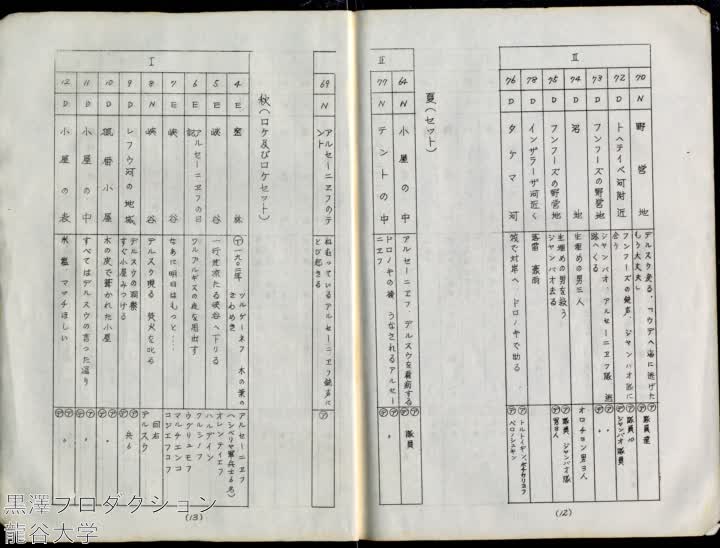 II
70
N
野営地
デルスウ走る、「ウデヘ 海に逃げた
もう大丈夫」
㋐
隊員達
72
D
トヘテイベ河附近
フンフーズの銃声、ジャンバオ隊に
会う
㋐
隊員10
ジャンバオ隊員
73
D
フンフーズの野営地
ジャンバオ、アルセーニエフ隊
跡へくる
㋐
74
D
沼地
生埋めの男三人
オロチョン男3人
75
D
フンフーズの野営地
生埋めの男を救う
ジャンバオ去る
㋐
隊員 ジャンバオ隊
男3人
78
D
インザラーザ河近く
落雷 豪雨
㋐
76
D
タケマ河
筏で対岸へ ドロノキで助る
㋐
㋐
夏(セット)
II
64
N
小屋の中
アルセーニエフ、デルスウを看病する
㋐
隊員
77
N
テントの中
ドロノキの後 うなされるアルセー
ニエフ
㋐
(12)
69
N
アルセーニエフのテ
ント
ねむっているアルセーニエフ銃声に
とび起きる
㋐
秋(ロケ及びロケセット)
I
4
E
密林
Ⓣ一九〇二年 ツルゲーネフ 木の葉の
ざわめき
アルセーニエフ
オレンティエフ
5
E
峡谷
一行荒凉たる峡谷へ下りる
ハルデイン
6
E
アルセーニエフの日
記
ワルプルギスの夜を思出す
7
E
峡谷
なあに明日はもっと・・・
マルチエンコ
コジエフコフ
8
N
峡谷
デルスウ現る 焚火を叱る
デルスウ
9
D
レフウ河の地域
デルスウの洞察
すぐ小屋みつける
㋐
㋐
兵6
10
D
猟番小屋
木の皮で葺かれた小屋
㋐
11
D
小屋の中
すべてはデルスウの言った通り
㋐
12
D
小屋の表
米、塩、マッチほしい
㋐
(13)
黒澤プロダクション
龍谷大学